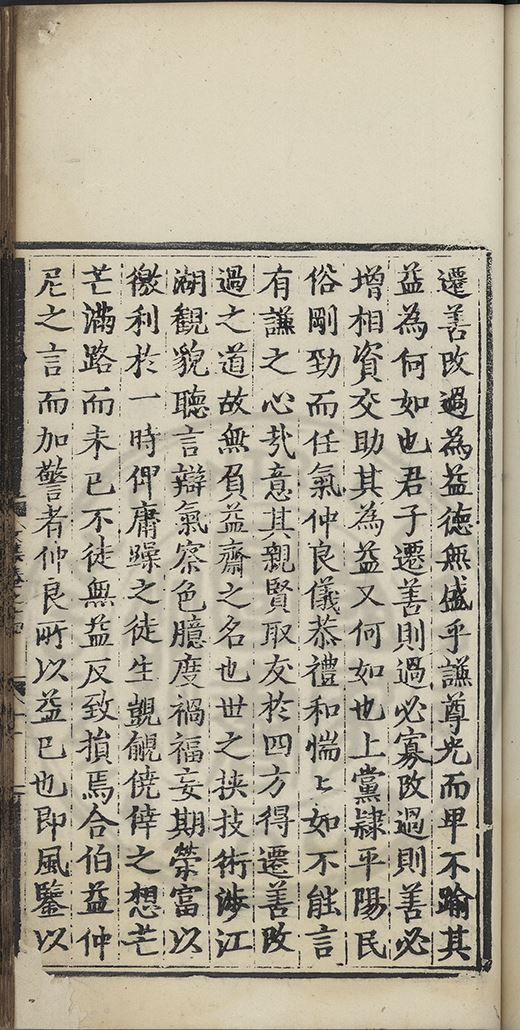 遷善改過為益德無盛乎謙尊光而甲不踰其
益為何如也君子遷善則過必寡改過則善必
增相資交助其為益又何如也上黨隷平陽民
俗剛勁而任氣仲良儀恭禮和惴〻如不能言
有謙之心㢤意其親賢取友於四方得遷善改
過之道故無負益齋之名也世之挾技術涉江
湖觀貌聽言辯氣察色臆度禍福妄期榮富以
徼利於一時俾庸躁之徒生覬覦僥倖之想芒
芒滿路而未已不徒無益反致損焉合伯益仲
尼之言而加警者仲良所以益巳也即風鑒以